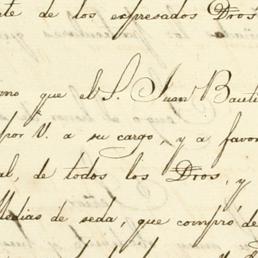 te de los expresados Dros
mo que el S. Juan Bauti
por V. a su cargo, y a favor
al, de todos los Dros, y
Medias de seda, que compró de